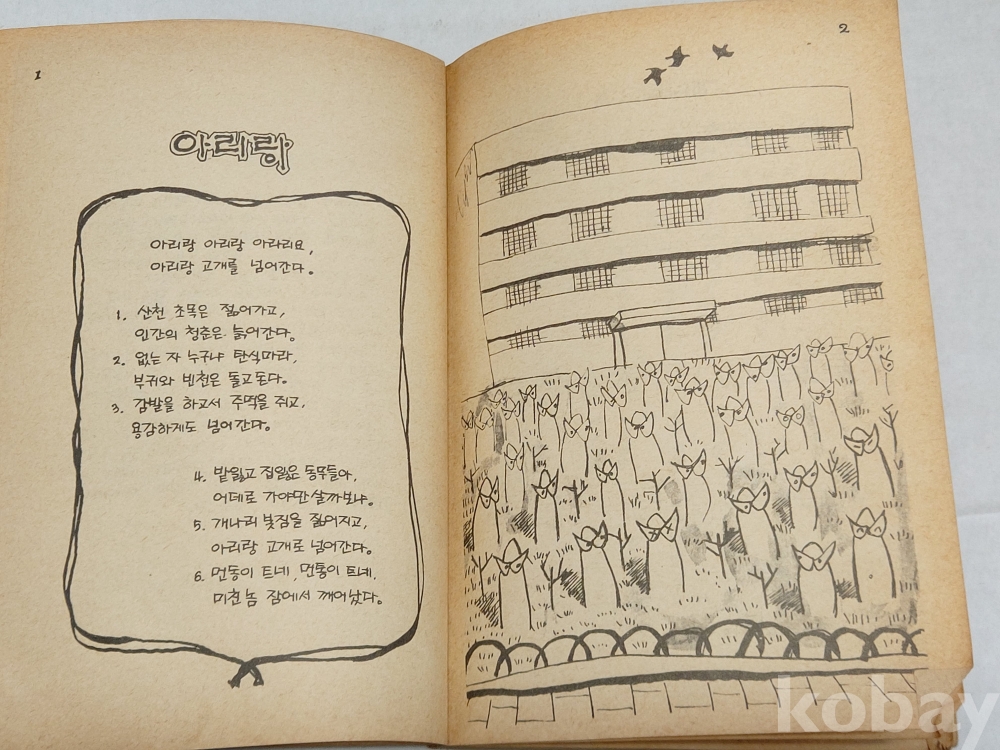 1
아리랑
아리랑 아리랑 아라리요,
아리랑 고개를 넘어간다.
1. 산천 초목은 젊어가고,
인간의 청춘은 늙어간다.
2. 없는 자 누구냐 탄식마라,
부귀와 빈천은 돌고돈다.
3. 감발을 하고서 주먹을 쥐고,
용감하게도 넘어간다.
4. 밭잃고 집잃은 동무들아,
어데로 가야만 살까보냐.
5. 개나리 봇짐을 짊어지고,
아리랑 고개로 넘어간다.
6. 먼동이 트네, 먼동이 트네.
미친놈 잠에서 깨어났다.
2
kobay